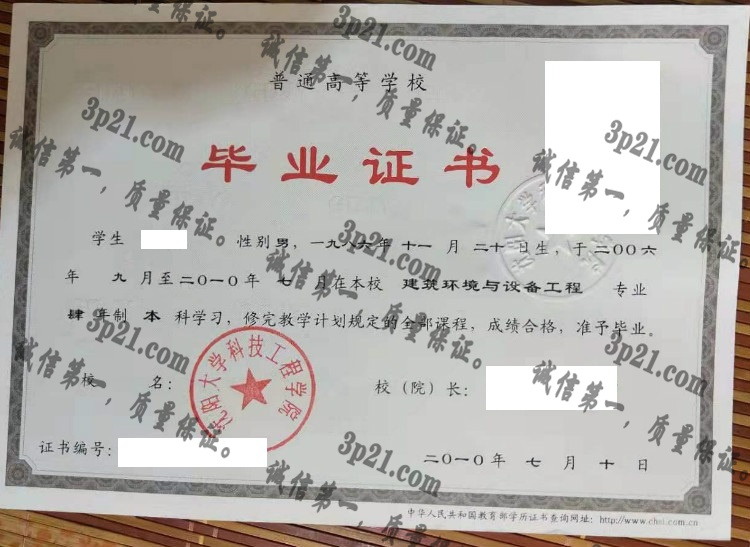 普通高等学校
毕业证书
学生 性别男，一九八六年十一月二十日生，于二〇〇六
年九月至二〇一〇年七月在本校 建筑环境与设备工程 专业
肆年制 本 科学习，修完教学计划规定的全部课程，成绩合格，准予毕业。
校 名：
校（院）长：
沈阳大学科技工程学院
证书编号：
二〇一〇年 七 月 十 日
中华人民共和国教育部学历证书查询网址：http://www.chsi.com.cn
3p21.com
诚信第一，质量保证。
3p21.com
诚信第一，质量保证。
3p21.com
诚信第一，质量保证。
3p21.com
诚信第一，质量保证。
3p21.com
诚信第一，质量保证。
3p21.com
诚信第一，质量保证。
3p21.com
诚信第一，质量保证。
3p21.com
诚信第一，质量保证。